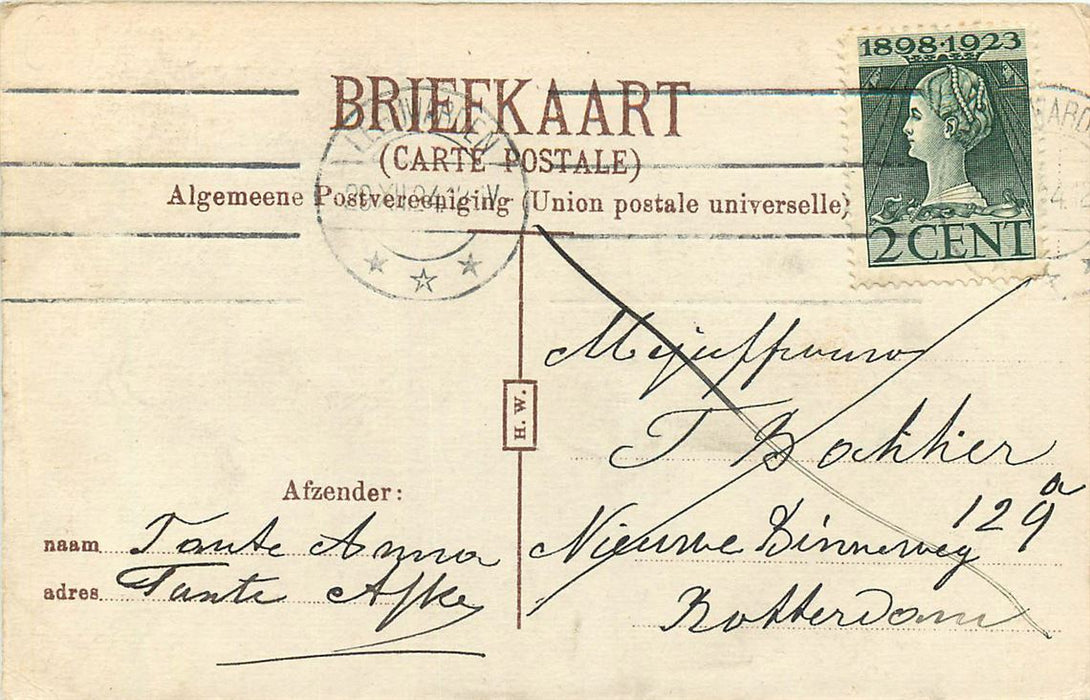 1898·1923
2 CENT
BRIEFKAART
(CARTE POSTALE)
Algemeene Postvereeniging (Union postale universelle)
LEEUWARDEN
H. W.
Mejuffrouw
T Bakker
Nieuwe Binneweg 129a
Rotterdam
Afzender:
naam Tante Anna
adres. Tante Afke